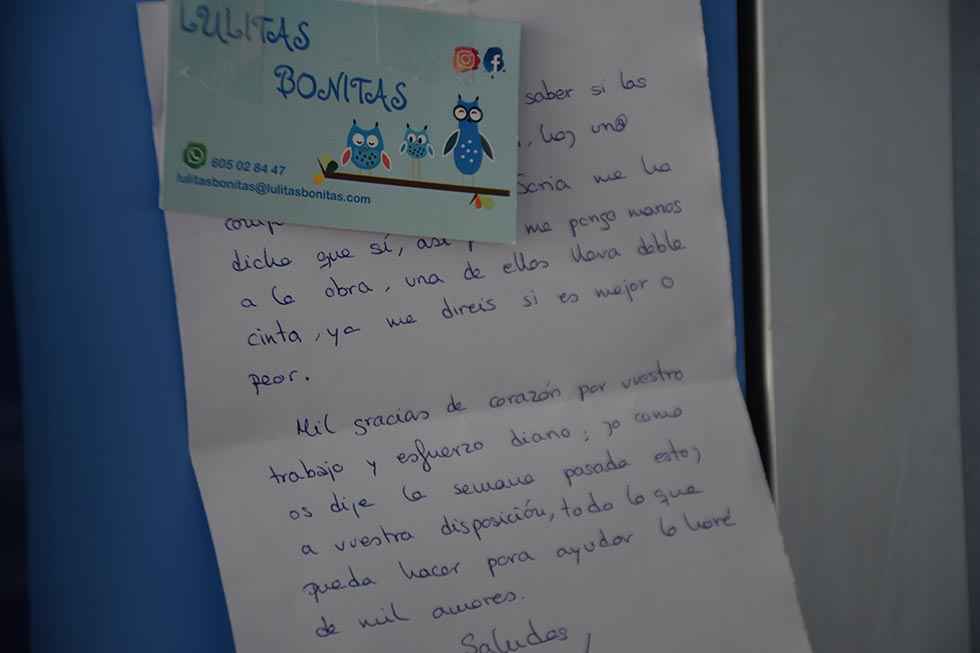 LULITAS
BONITAS
605 02 84 47
lulitasbonitas@lulitasbonitas.com
saber si las
hoy un@
Soria me ha
dicho que sí, así me pongo manos
a la obra, una de ellas lleva doble
cinta, ya me direis si es mejor o
peor.
Mil gracias de corazón por vuestro
trabajo y esfuerzo diario; yo como
os dije la semana pasada estoy
a vuestra disposición, todo lo que
pueda hacer para ayudar lo haré
de mil amores.
Saludos,